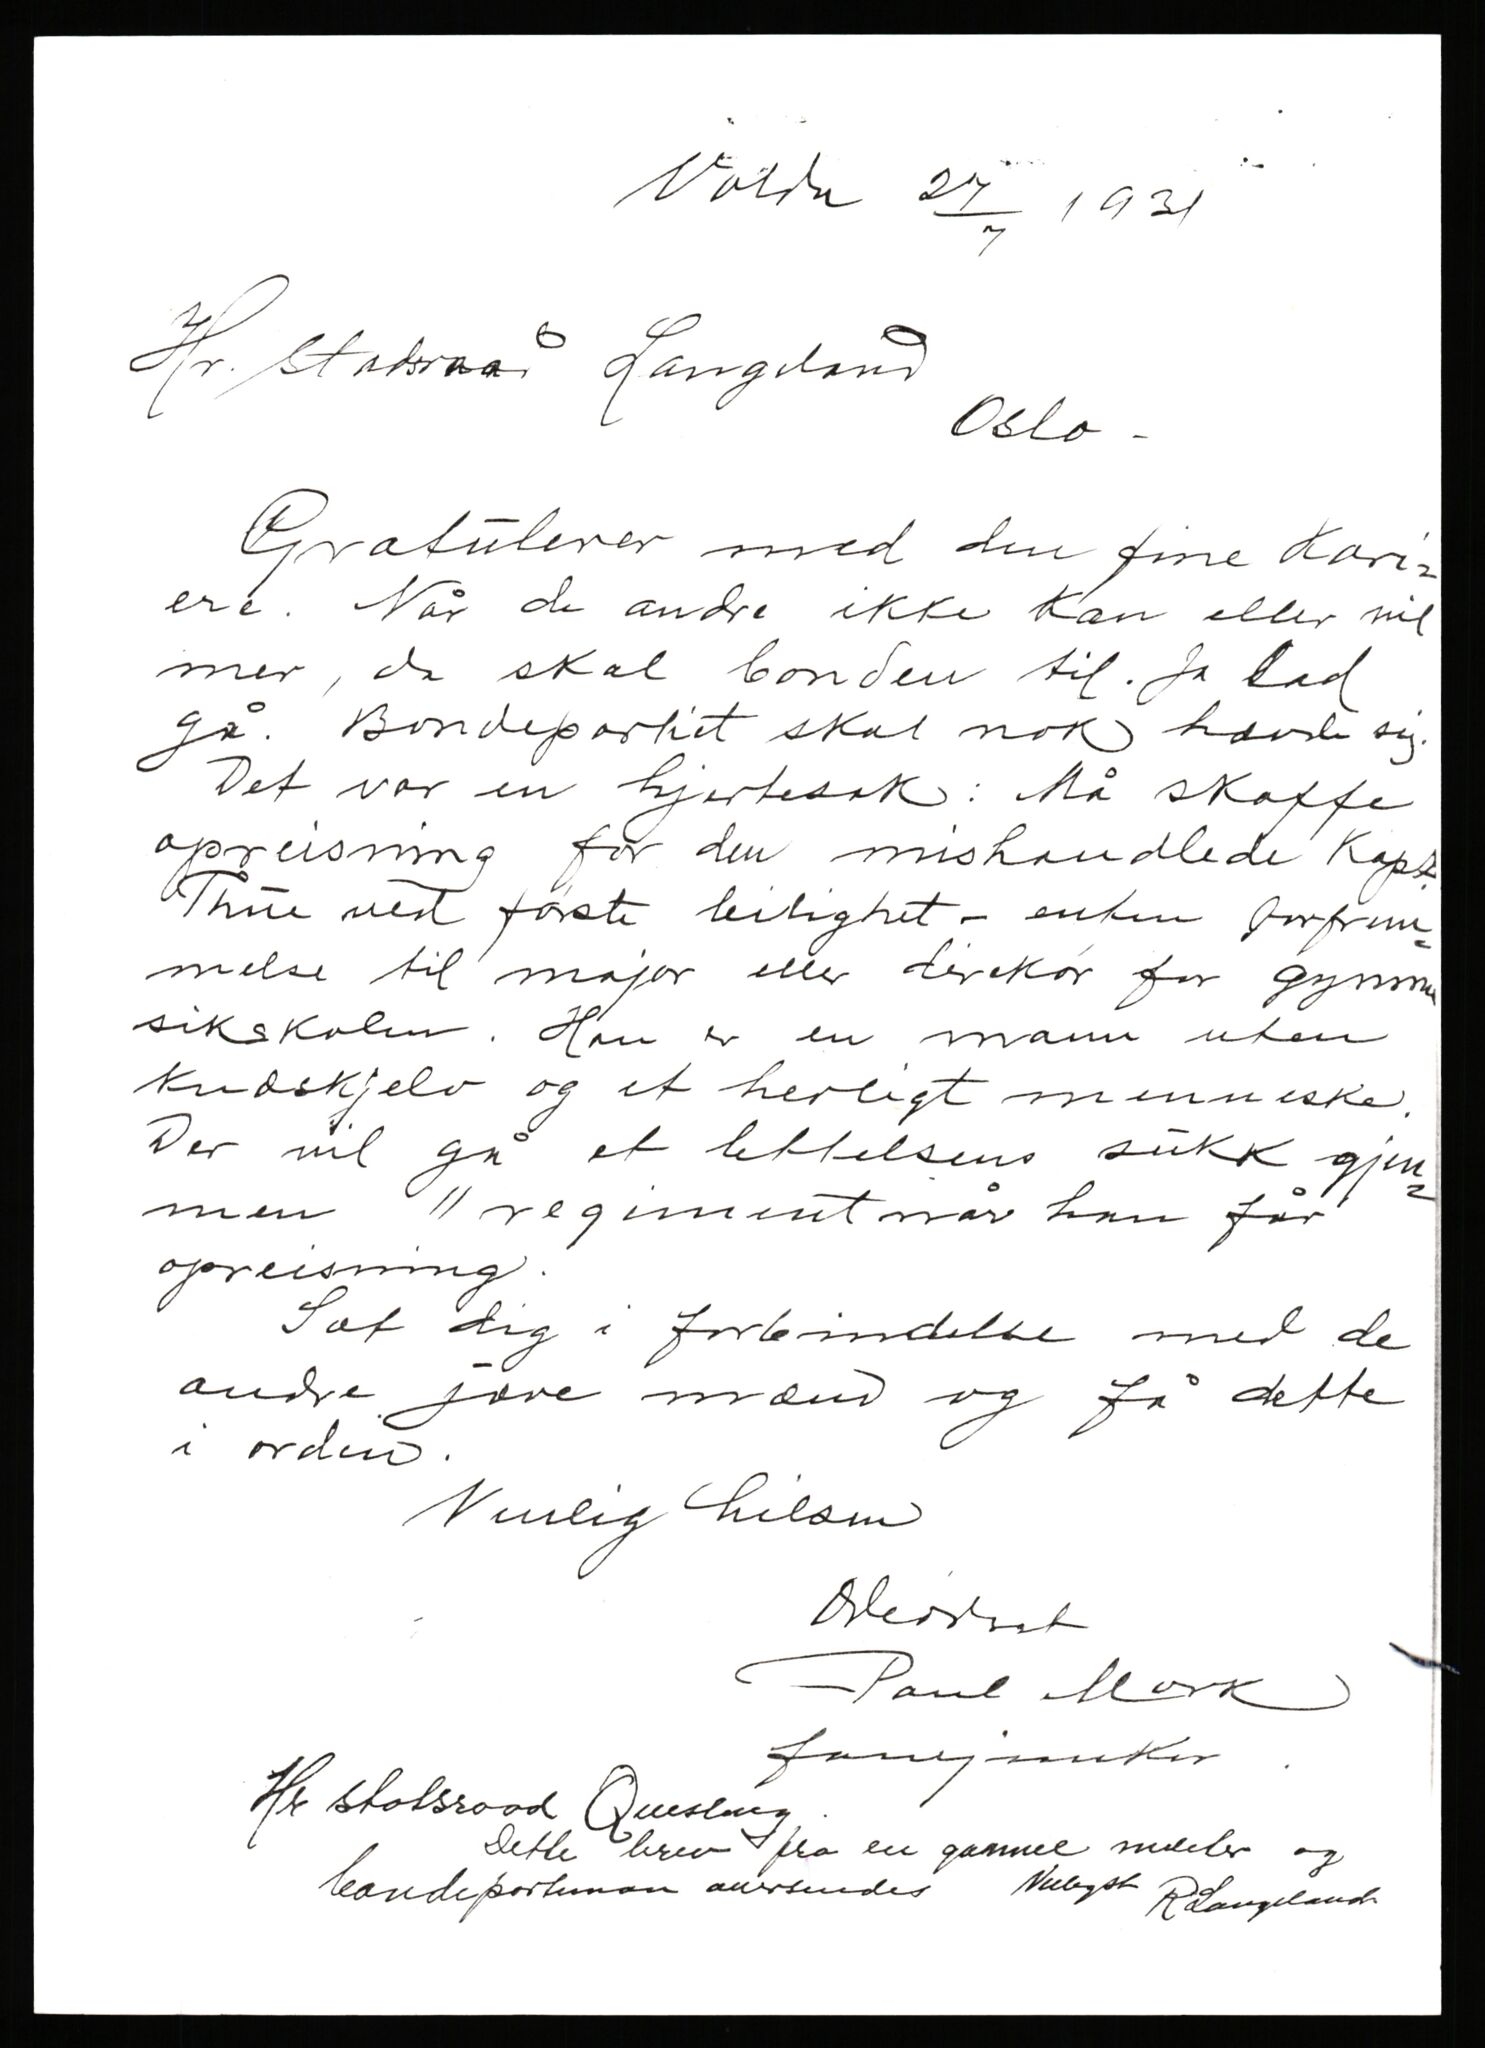 Volda 27/7 1931
Hr. Statsraad Langeland
Oslo -
Gratulerer med den fine Kari=
ere. Når de andre ikke kan eller vil
mer, da skal bonden til. Ja lad
gå. Bondepartiet skal nok hævde sig.
Det var en hjertesak: Må skaffe
opreisning for den mishandlede Kapt.
Thue ved første leilighet - enten forfrem=
melse til major eller direkør for gymna
sikskolen. Han er en mann uten
knæskjelv og et herligt menneske.
Der vil gå et lettelsens sukk gjen=
men 11 regiment når han får
opreisning.
Sæt dig i forbindelse med de
andre jæve mænd og få dette
i orden.
Venlig hilsen
Paul Mork
fanejunker.
Hr statsraad Quisling.
Dette brev fra en gammel og
bondepartiman oversendes Venligst R Langeland